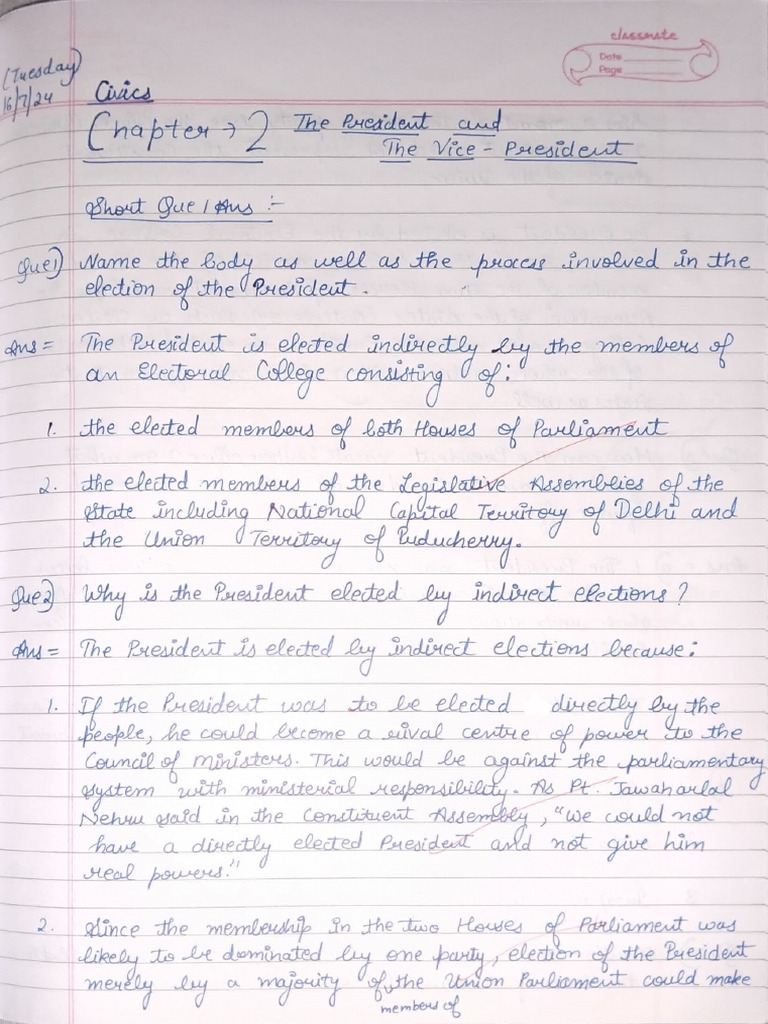 classmate
Date
Page
(Tuesday)
16/7/24
Civics
Chapter → 2 The President and
The Vice - President
Short Que / Ans :-
Que 1) Name the body as well as the process involved in the
election of the President.
Ans = The President is elected indirectly by the members of
an Electoral College consisting of:
1. the elected members of both Houses of Parliament
2. the elected members of the Legislative Assemblies of the
State including National Capital Territory of Delhi and
the Union Territory of Puducherry.
Que 2) Why is the President elected by indirect elections?
Ans = The President is elected by indirect elections because:
1. If the President was to be elected directly by the
people, he could become a rival centre of power to the
Council of ministers. This would be against the parliamentary
system with ministerial responsibility. As Pt. Jawaharlal
Nehru said in the Constituent Assembly, "We could not
have a directly elected President and not give him
real powers."
2. Since the membership in the two Houses of Parliament was
likely to be dominated by one party, election of the President
merely by a majority of the Union Parliament could make
members of